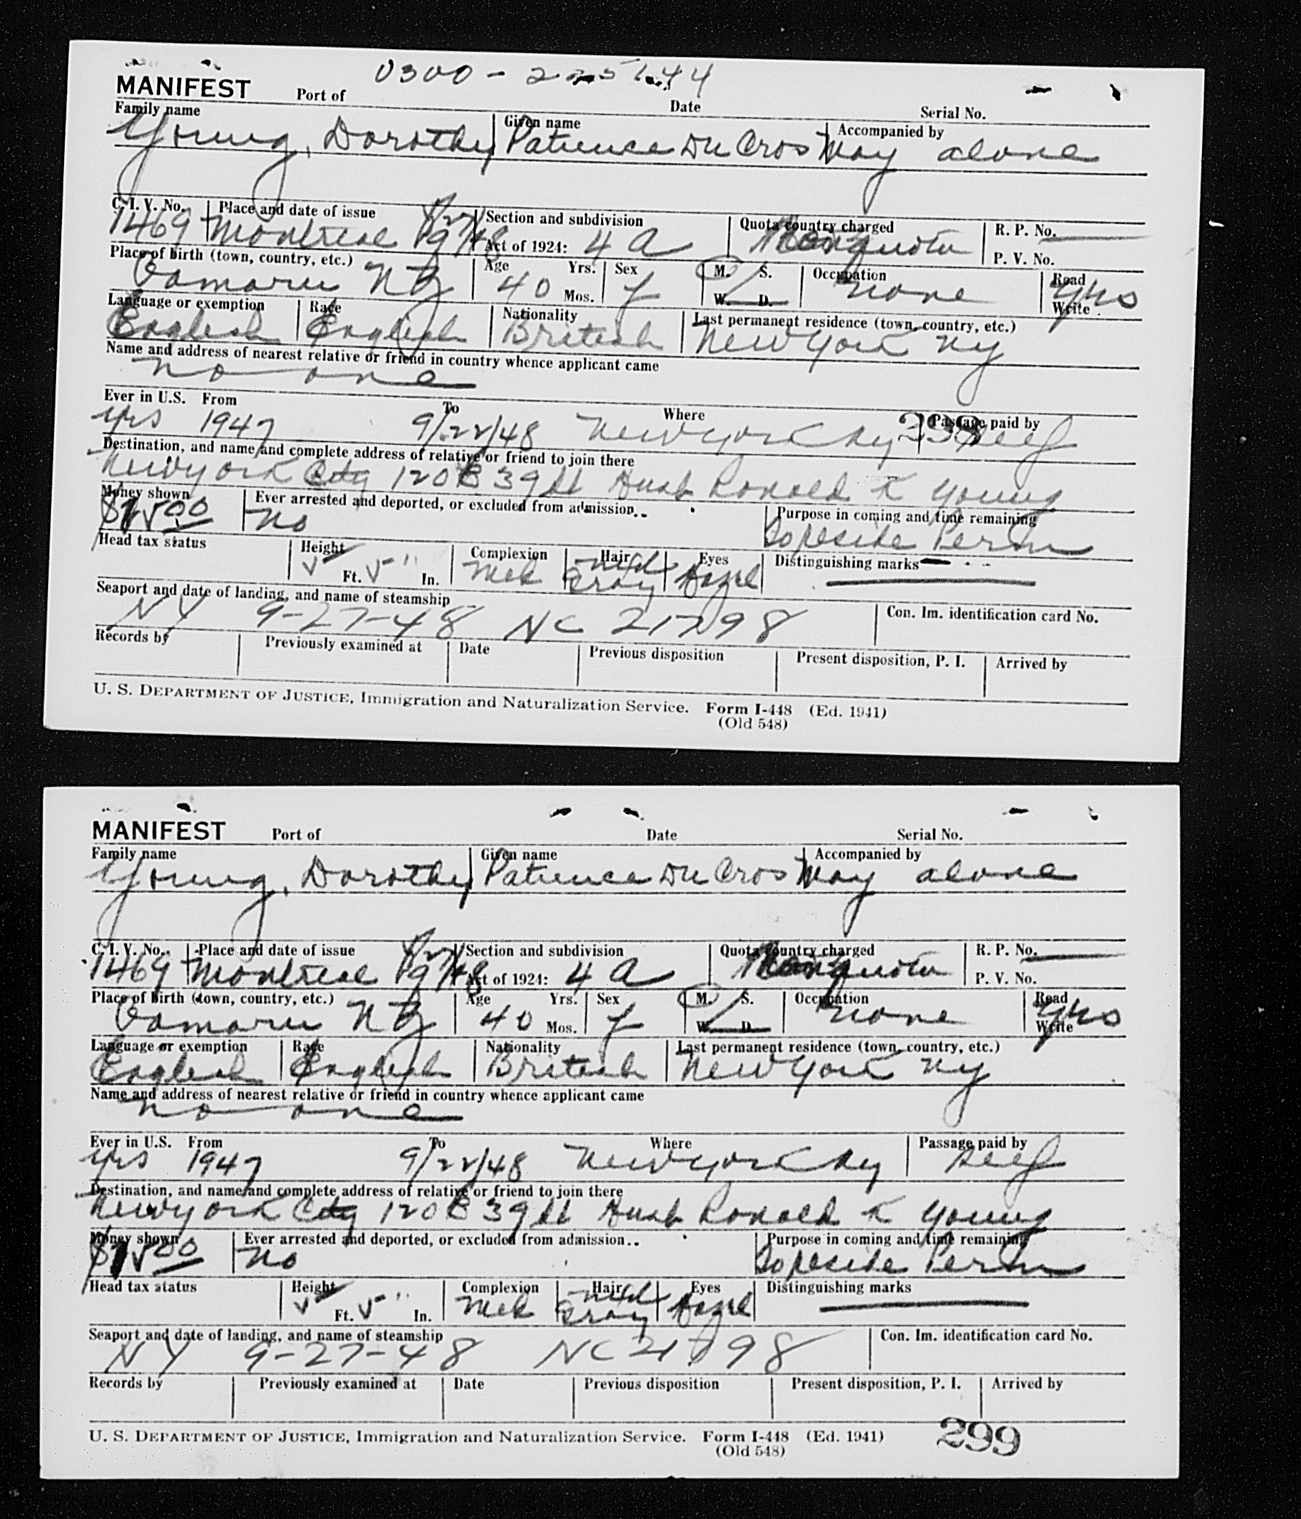 0300-225144
MANIFEST Port of Date Serial No.
Family name Given name Accompanied by
Young, Dorothy Patience Du Cros May alone
C.I.V. No. Place and date of issue Section and subdivision Quota country charged R. P. No.
1469 Montreal 9/27/48 Act of 1924: 4 A Nonquota P. V. No.
Place of Birth (town, country, etc.) Age Yrs. Sex M. S. Occupation Read
Oamaru NZ 40 Mos. f W. D. none yes Write
Language or exemption Race Nationality Last permanent residence (town, country, etc.)
English English British New York NY
Name and address of nearest relative or friend in country whence applicant came
no one
Ever in U.S. From To Where Passage paid by
yes 1947 9/22/48 New York Ny 298 self
Destination, and name and complete address of relative or friend to join there
New york City 120 E 39 St Husb Ronald K Young
Money shown Ever arrested and deported, or excluded from admission Purpose in coming and time remaining
No To reside Perm
Head tax status Height Ft. In. Complexion Hair Eyes Distinguishing marks
5 5" Med mixd Gray Hazel
Seaport and date of landing, and name of steamship Con. Im. identification card No.
NY 9-27-48 NC 21798
Records by Previously examined at Date Previous disposition Present disposition, P. I. Arrived by
U. S. DEPARTMENT OF JUSTICE, Immigration and Naturalization Service. Form I-448 (Ed. 1941)
(Old 548)
MANIFEST Port of Date Serial No.
Family name Given name Accompanied by
Young, Dorothy Patience Du Cros May alone
C.I.V. No. Place and date of issue Section and subdivision Quota country charged R. P. No.
1469 Montreal 9/27/48 Act of 1924: 4 A Nonquota P. V. No.
Place of Birth (town, country, etc.) Age Yrs. Sex M. S. Occupation Read
Oamaru NZ 40 Mos. f W. D. none yes Write
Language or exemption Race Nationality Last permanent residence (town, country, etc.)
English English British New York NY
Name and address of nearest relative or friend in country whence applicant came
no one
Ever in U.S. From To Where Passage paid by
yes 1947 9/22/48 New York Ny self
Destination, and name and complete address of relative or friend to join there
New york City 120 E 39 St Husb Ronald K Young
Money shown Ever arrested and deported, or excluded from admission Purpose in coming and time remaining
No To reside Perm
Head tax status Height Ft. In. Complexion Hair Eyes Distinguishing marks
5 5" Med mixd Gray Hazel
Seaport and date of landing, and name of steamship Con. Im. identification card No.
NY 9-27-48 NC 21798
Records by Previously examined at Date Previous disposition Present disposition, P. I. Arrived by
U. S. DEPARTMENT OF JUSTICE, Immigration and Naturalization Service. Form I-448 (Ed. 1941)
(Old 548)
299